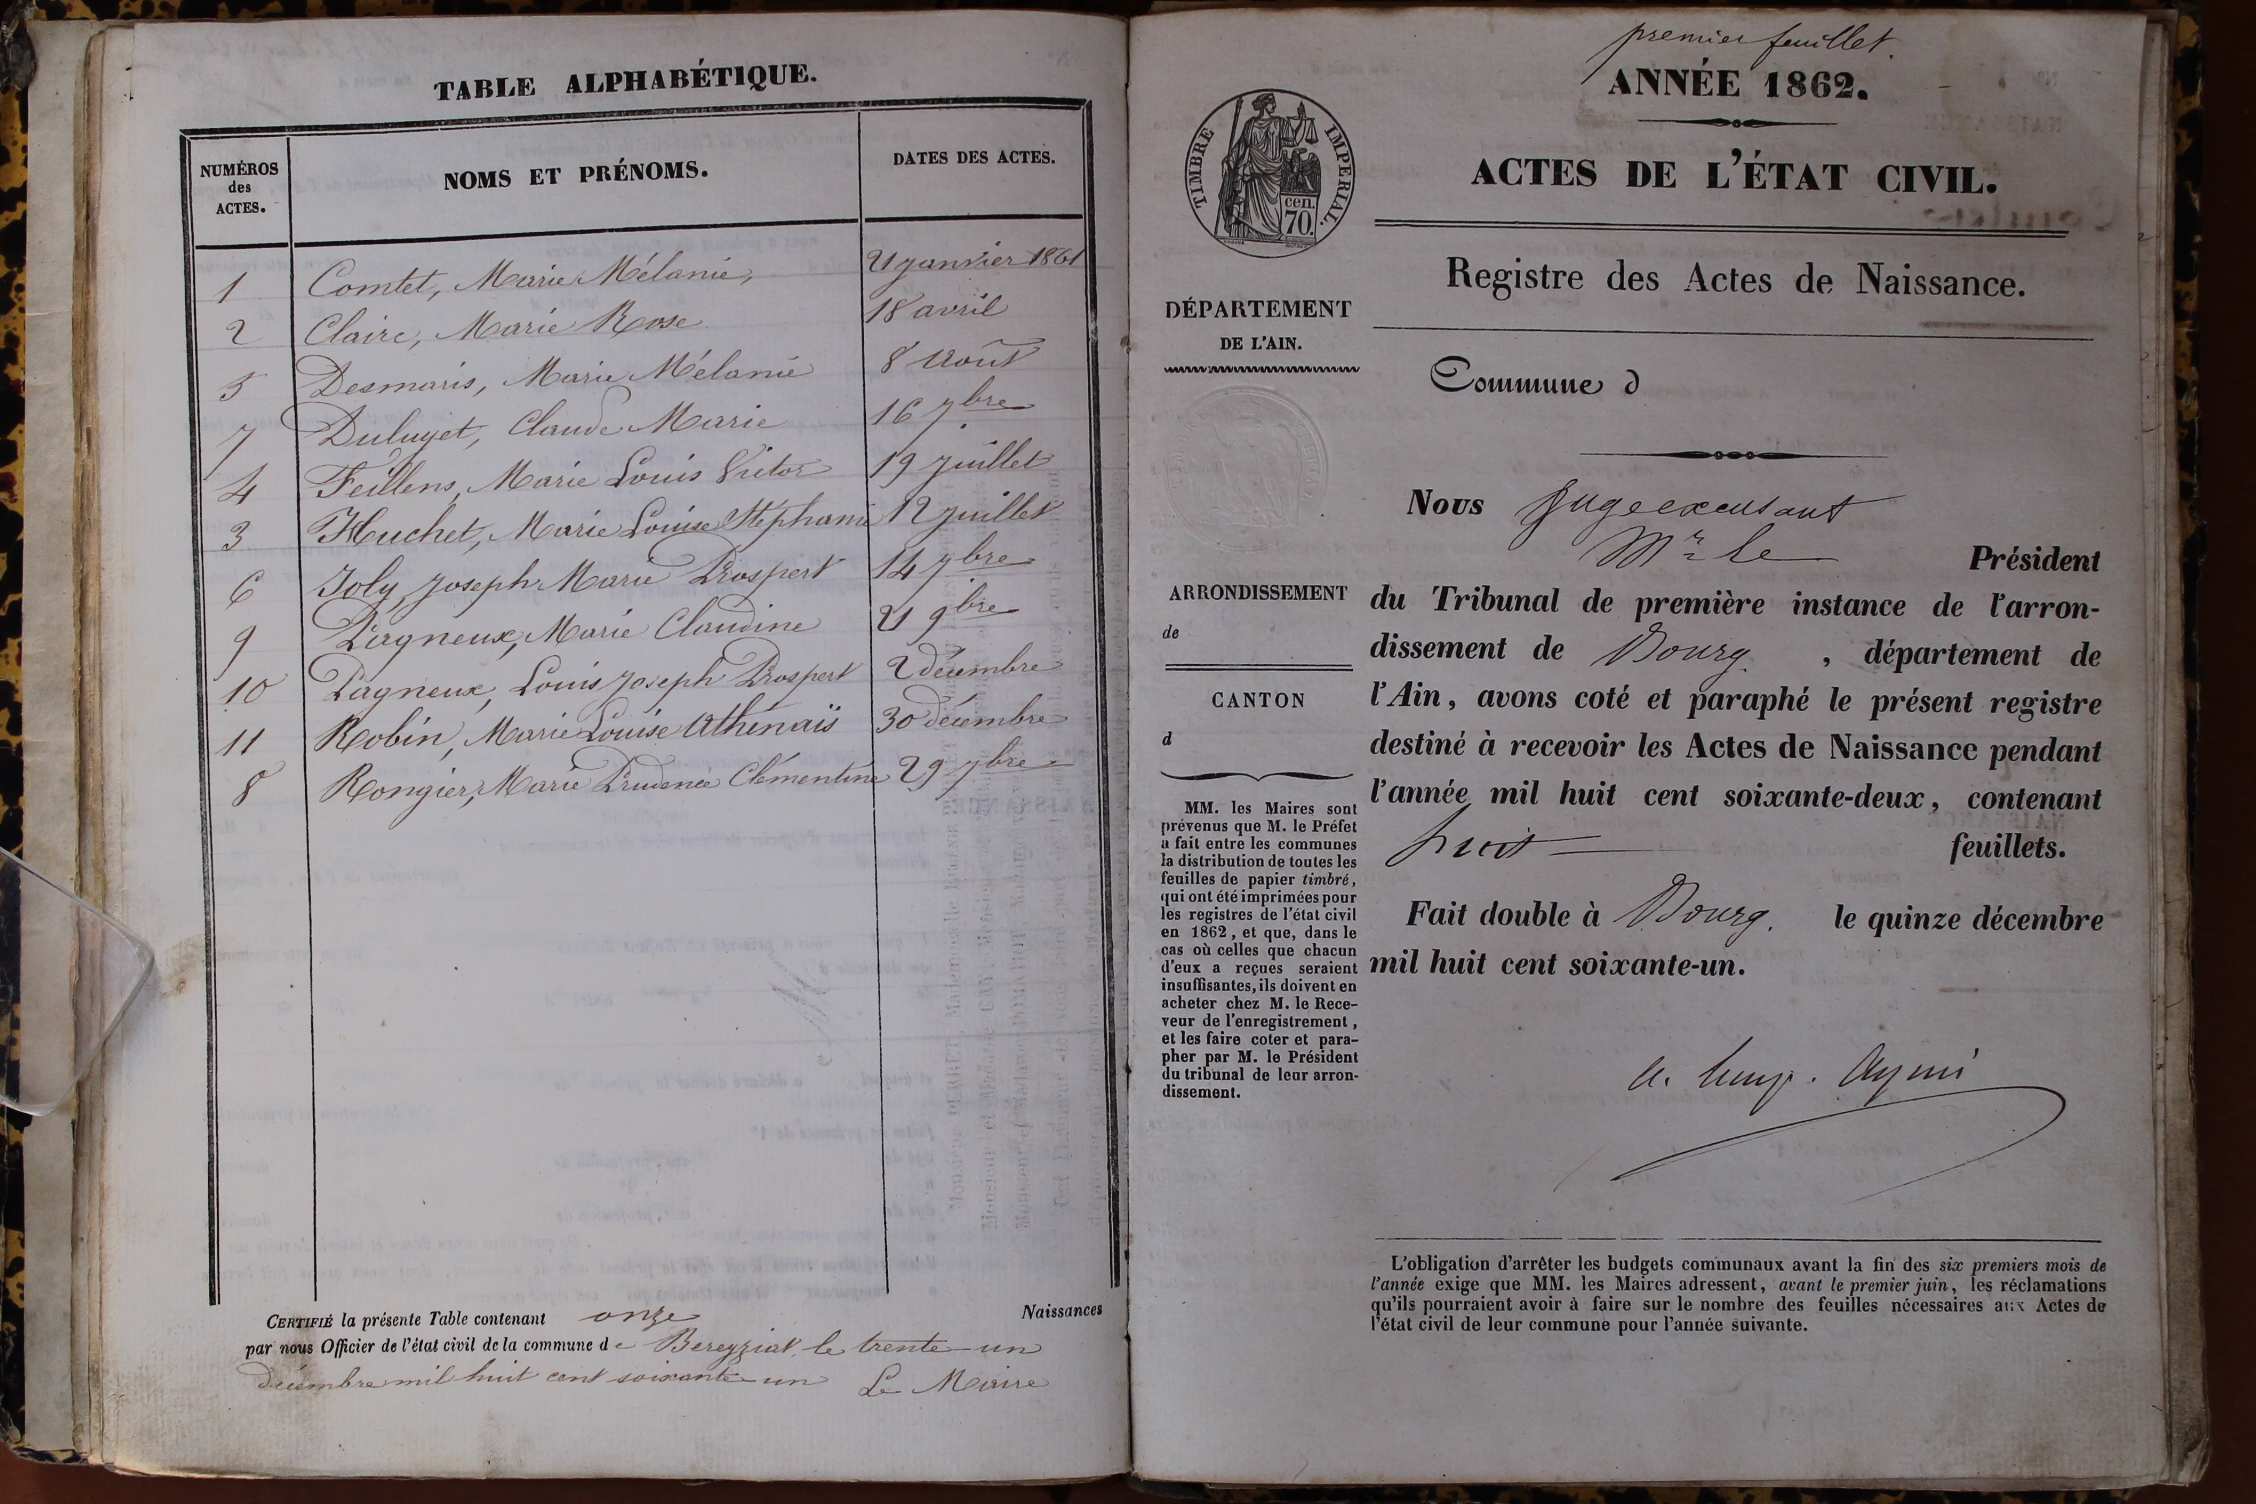 TABLE ALPHABÉTIQUE.
NUMÉROS des ACTES. NOMS ET PRÉNOMS. DATES DES ACTES.
1 Comtet, Marie Mélanie, 21 janvier 1861
2 Claire, Marie Rose 18 avril
5 Desmaris, Marie Mélanie 8 Août
7 Duluyet, Claude Marie 16 7bre
4 Feillens, Marie Louis Victor 19 Juillet
3 Huchet, Marie Louise Stéphanie 12 Juillet
6 Joly, Joseph Marie Prospert 14 7bre
9 Pagneux, Marie Claudine 21 9bre
10 Pagneux, Louis Joseph Prospert 2 décembre
11 Robin, Marie Louise Athénaïs 30 décembre
8 Rongier, Marie Prudence Clémentine 29 7bre
CERTIFIÉ la présente Table contenant onze Naissances
par nous Officier de l'état civil de la commune de Bereyziat, le trente-un
décembre mil huit cent soixante-un Le Maire
premier feuillet.
ANNÉE 1862.
ACTES DE L'ÉTAT CIVIL.
Registre des Actes de Naissance.
Commune d
TIMBRE IMPERIAL.
cen.
70.
DÉPARTEMENT
DE L'AIN.
ARRONDISSEMENT
de
CANTON
d
MM. les Maires sont
prévenus que M. le Préfet
a fait entre les communes
la distribution de toutes les
feuilles de papier timbré,
qui ont été imprimées pour
les registres de l'état civil
en 1862, et que, dans le
cas où celles que chacun
d'eux a reçues seraient
insuffisantes, ils doivent en
acheter chez M. le Rece-
veur de l'enregistrement,
et les faire coter et para-
pher par M. le Président
du tribunal de leur arron-
dissement.
Nous Juge excusant
Mr le Président
du Tribunal de première instance de l'arron-
dissement de Bourg, département de
l'Ain, avons coté et paraphé le présent registre
destiné à recevoir les Actes de Naissance pendant
l'année mil huit cent soixante-deux, contenant
huit feuillets.
Fait double à Bourg. le quinze décembre
mil huit cent soixante-un.
L'obligation d'arrêter les budgets communaux avant la fin des six premiers mois de
l'année exige que MM. les Maires adressent, avant le premier juin, les réclamations
qu'ils pourraient avoir à faire sur le nombre des feuilles nécessaires aux Actes de
l'état civil de leur commune pour l'année suivante.